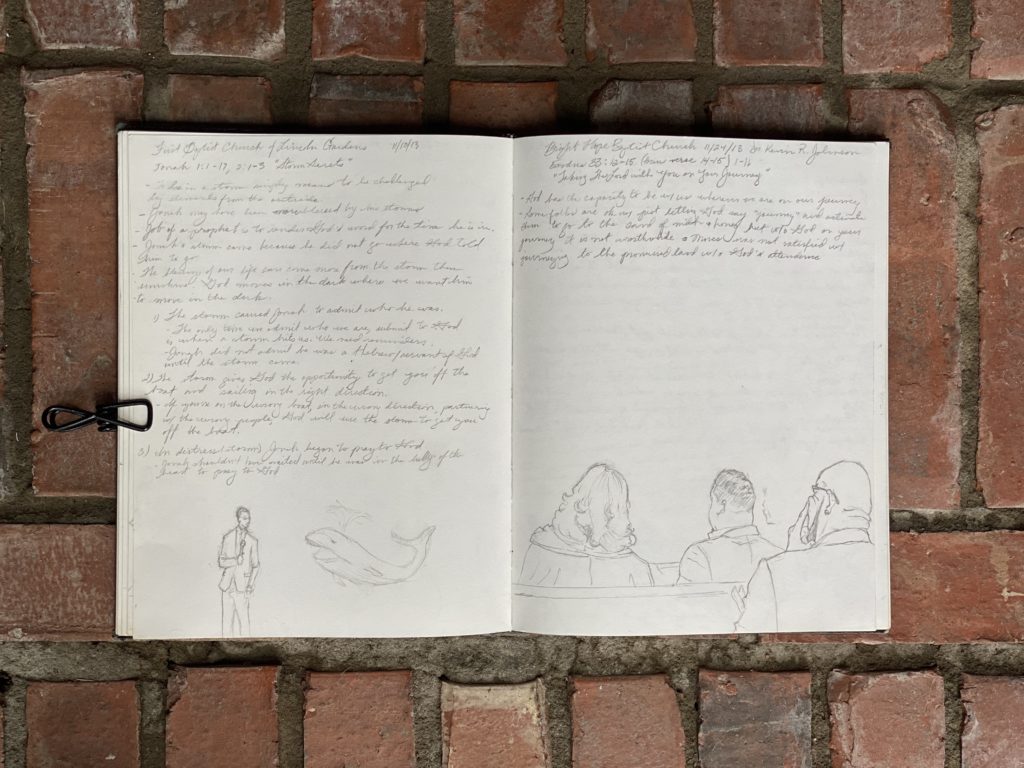 First Baptist Church of Lincoln Gardens 11/10/13
Jonah 1:1-17, 2:1-3 "Storm Secrets"
- To be in a storm simply means to be challenged
by elements from the outside.
- Jonah may have been by the storms
- Job of a prophet is to render God's word for the time he is in.
- Jonah's storm came because he did not go where God told
him to go
- The blessing of our life can come more from the storm than
sunshine. God moves in the dark where we want him
to move in the dark.
1) The storm caused Jonah to admit who he was.
- The only time we admit who we are, submit to God
is when a storm hits us. We need reminders.
- Jonah did not admit he was a Hebrew/servant of God
until the storm came.
2) The storm gives God the opportunity to get you off the
boat and sailing in the right direction.
- If you're on the wrong boat, in the wrong direction, partnering
w/ the wrong people, God will use the storm to get you
off the boat.
3) In distress (storm), Jonah began to pray to God
- Jonah shouldn't have waited until he was in the belly of the
beast to pray to God
Bright Hope Baptist Church 11/24/13 Dr. Kevin R. Johnson
Exodus 33:12-15 (Main verse 14-15)
"Taking The Lord with You on Your Journey"
- God has the capacity to be w/ us wherever we are on our journey
- Some folks are ok w/ just letting God say "journey" and
them to go to the land of milk & honey but w/o God on your
journey it is not worthwhile. Moses was not satisfied w/
journeying to the promised land w/o God's attendance